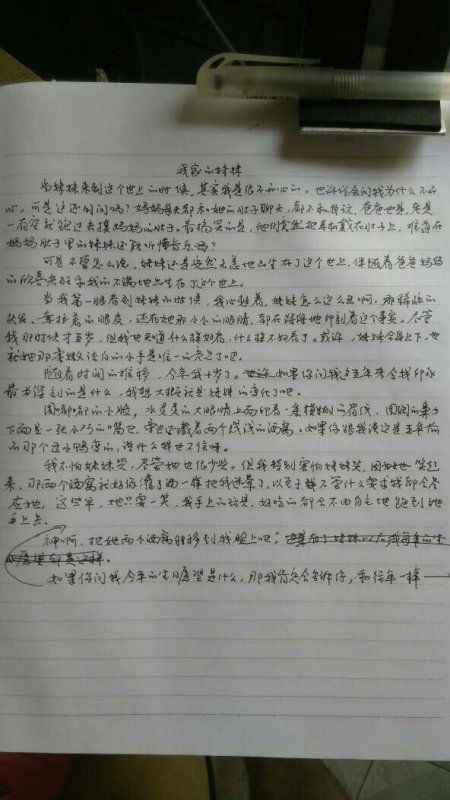 我家的妹妹
当妹妹来到这个世上的时候，其实我是很不开心的。也许你会问我为什么不开
心，可是这还用问吗？妈妈每天都和她的肚子聊天，都不和我说，爸爸也是，老是
一有空就跑过去摸妈妈的肚子。最搞笑的是，他们竟然把耳机戴在肚子上，难道在
妈妈肚子里的妹妹还能听懂音乐吗？
可是不管怎么说，妹妹还是安然无恙地出生在了这个世上，伴随着爸爸妈妈
的欣喜和我的不满地出生在了这个世上。
当我第一眼看到妹妹的时候，我心想着，妹妹怎么这么丑啊，那稀疏的
头发，耷拉着的眼皮，还有她那小小的眼睛，都在深深地印刻着这个事实。尽管
我那时候才五岁，但我也知道什么样好看，什么样不好看了。或许，妹妹全身上下，也
就她那嫩白的小手是唯一的亮点了吧。
随着时间的推移，今年我十岁了。如果你问我这五年来令我印象
最为深刻的是什么，我想大概就是妹妹的变化了吧。
圆嘟嘟的小脸，水灵灵的大眼睛上面印着一条
下面是一张小巧的嘴巴，旁边还藏着两个浅浅的酒窝，如果你跟我说这是五年前
的那个丑小鸭变的，说什么我也不信呀。
我不怕妹妹哭，尽管她也很少哭。但我特别害怕妹妹笑，因为她一笑起
来，那两个酒窝就好似灌了酒一样把我迷晕了，以至于无论什么要求我都会答
应她，这些年，她只要一笑，我手上的玩具，好吃的都会不由自主地跑到她
手上去。
神啊，把她两个酒窝转移到我脸上吧！
如果你问我今年的生日愿望是什么，那我肯定会告诉你，和往年一样——